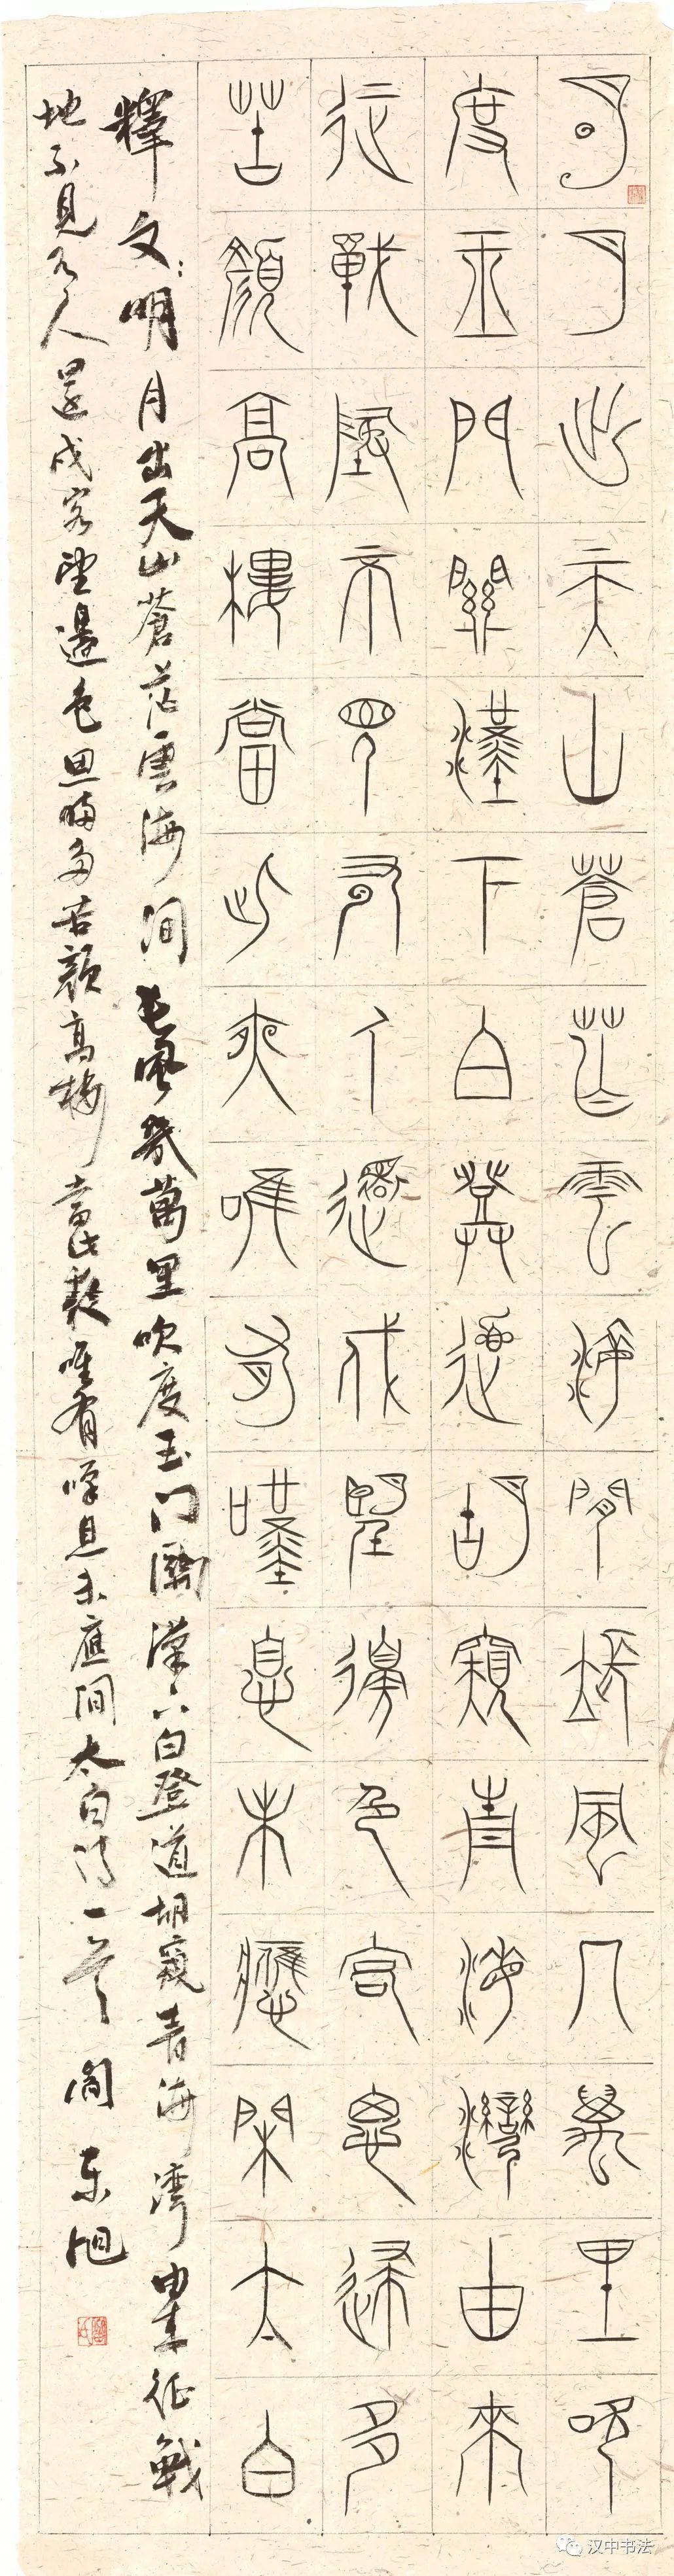 明月出天山蒼茫雲海間長風几萬里吹
度玉門關漢下白登道胡窺青海灣由來
征戰地不見有人還戍望邊色客思歸多
苦顏高樓當此夜唯有嘆息未應閑太白
釋文:明月出天山蒼茫雲海间長風幾萬里吹度玉门關漢下白登道胡窺青海湾由來征戰
地不見有人還戍客望邊色思歸多苦顏高樓當此夜唯有嘆息未應间太白诗一首 阎东旭
汉中书法